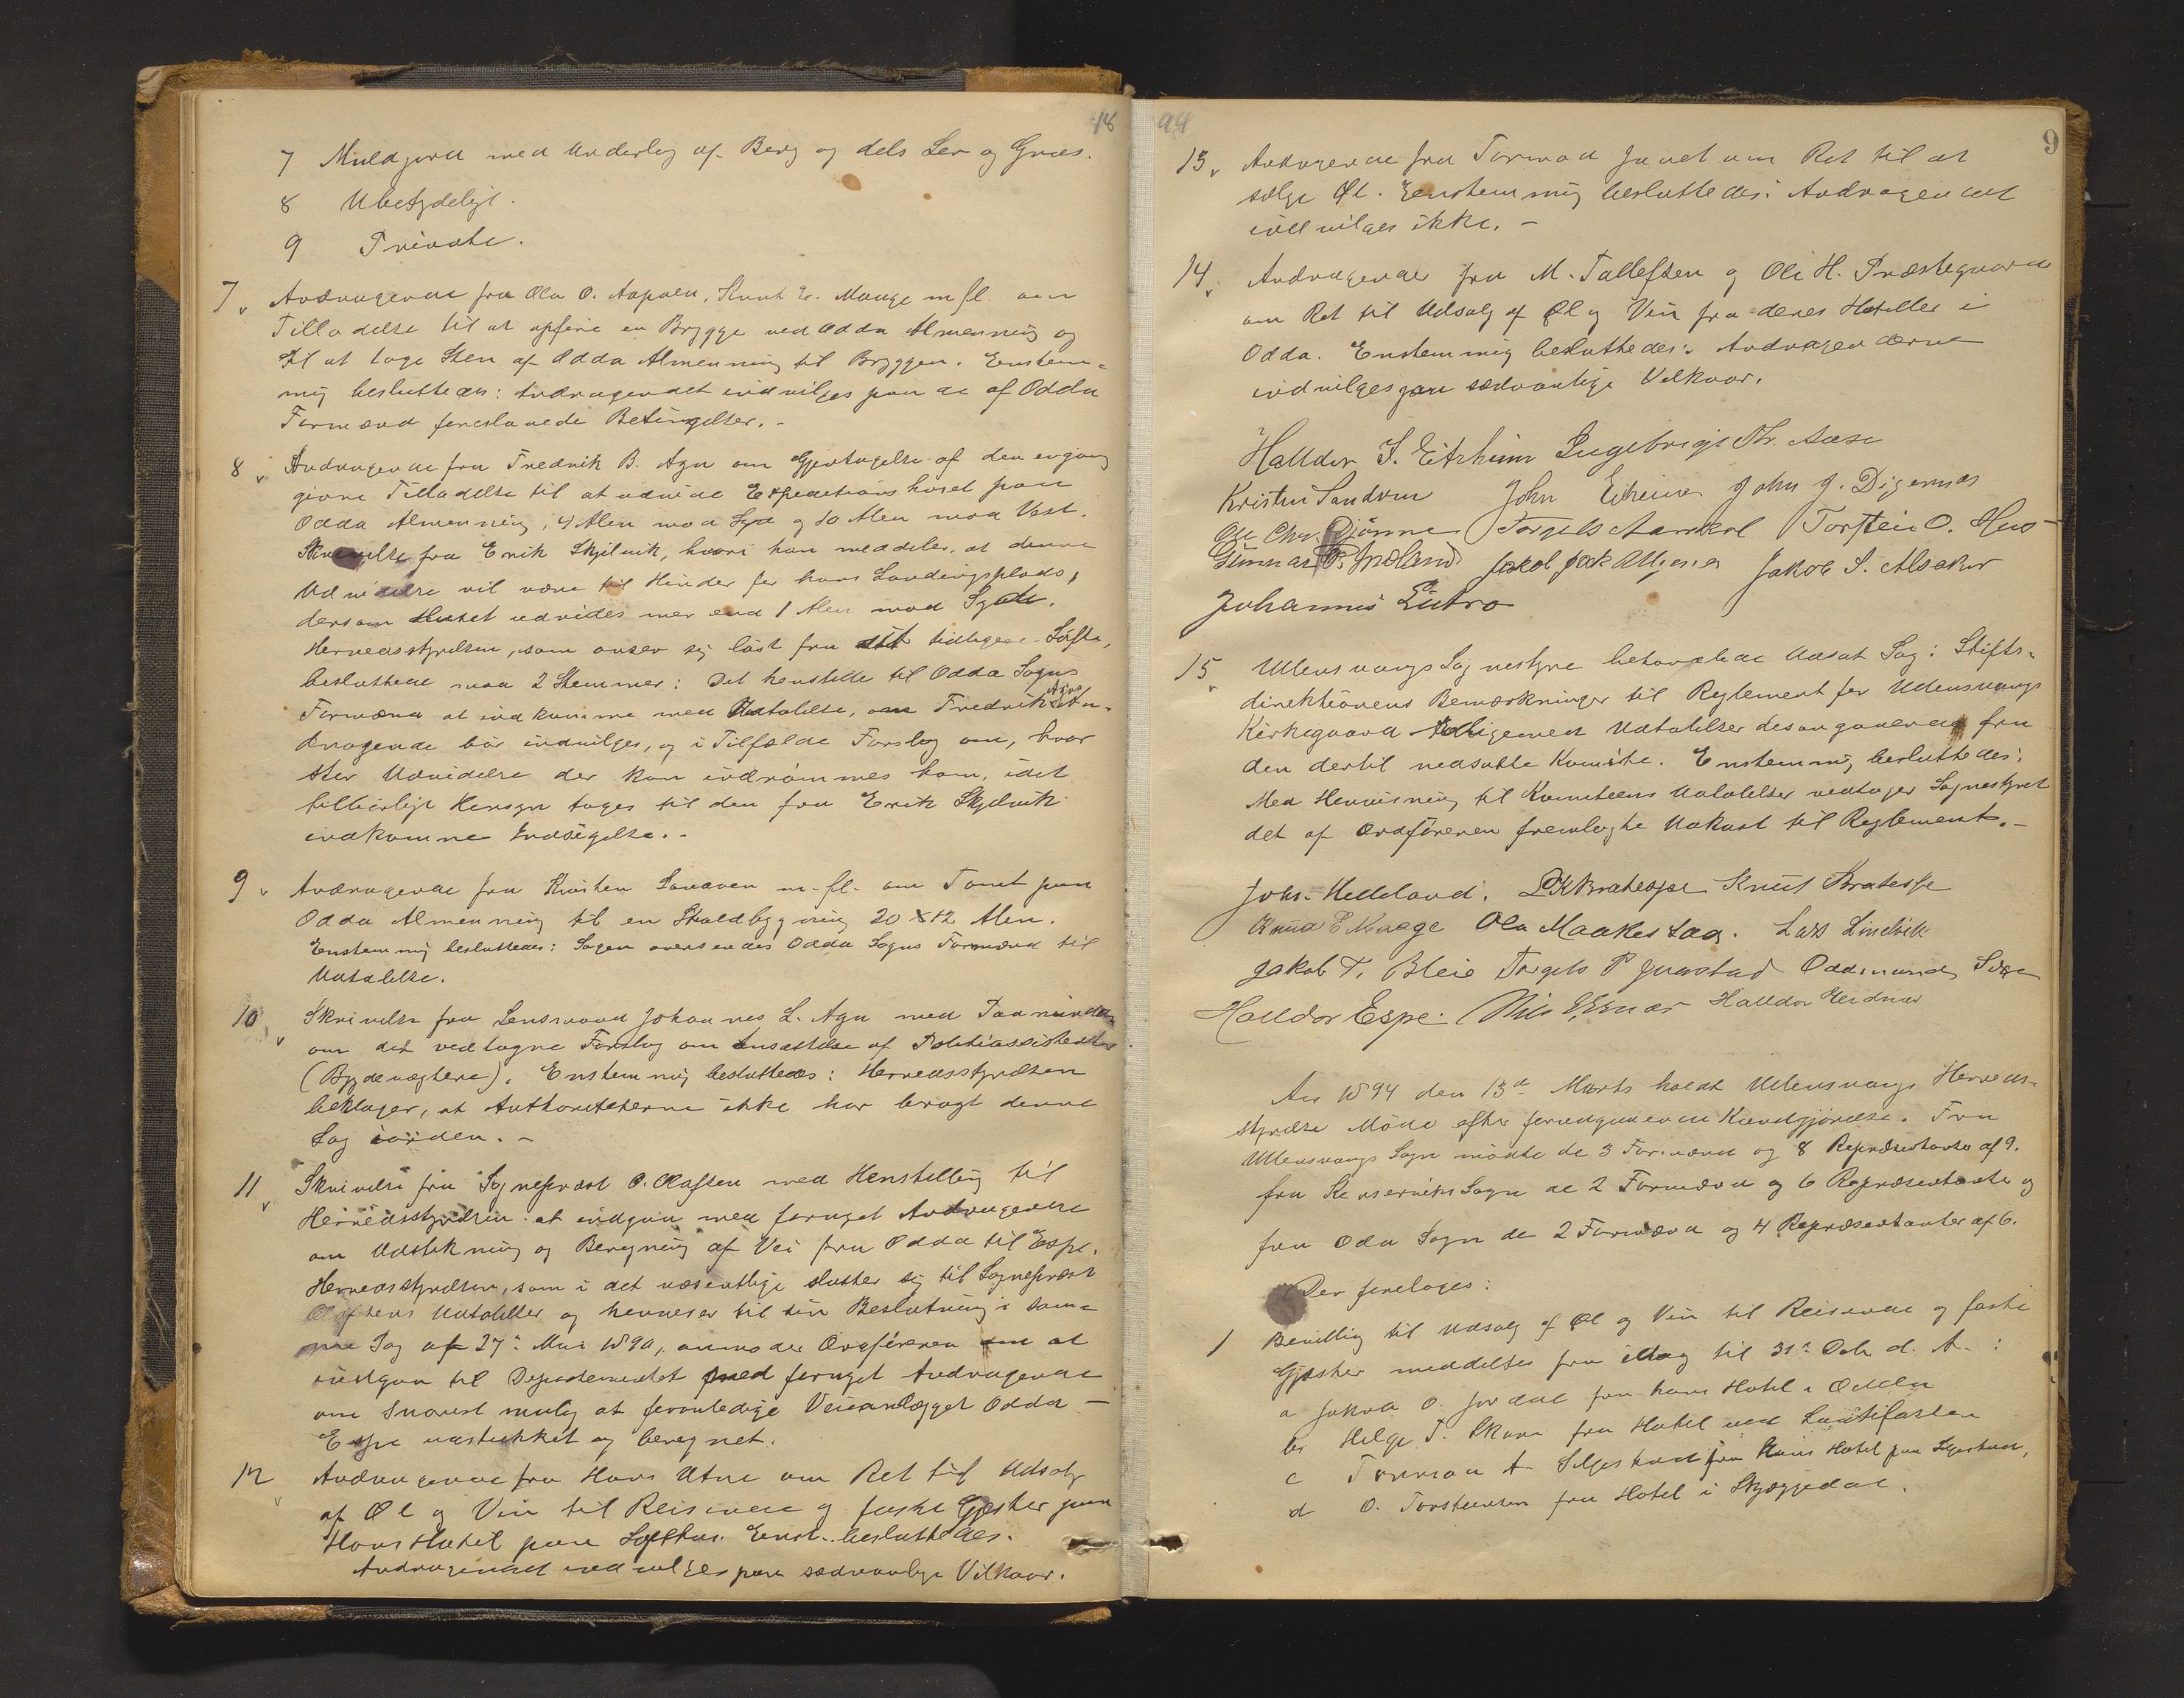 18
7 Muldjord med Underlag af Berg og dels Ler og Grus.
8 Ubetydeligt.
9 Private.
7 Andragende fra Ola O. Aapalen, Knut E. Mauge m fl. om
Tilladelse til at opføre en Brygge ved Odda Almenning og
til at tage Sten af Odda Almenning til Bryggen. Enstem-
mig besluttedes: Andragendet indvilges paa de af Odda
Formænd foreslaaede Betingelser. -
8 Andragende fra Fredrik B. Aga om Gjentagelse af den engang
givne Tilladelse til at udvide Expeditionshuset paa
Odda Almenning, 4 Alen mod Syd og 10 Alen mod Vest.
Skrivelse fra Erik Skjelvik, hvori han meddeler, at denne
Udvidelse vil være til Hinder for hans Landingsplads,
dersom Huset udvides mer end 1 Alen mod Syd.
Herredsstyrelsen, som anser sig løst fra sit tidligere Løfte,
besluttede mod 2 Stemmer: Det henstilles til Odda Sogns
Formænd at indkomme med Udtalelse, om Fredrik Agas An-
dragende bør indvilges, og i Tilfælde Forslag om, hvor
stor Udvidelse der kan indrømmes ham, idet
tilbørligt Hensyn tages til den fra Erik Skjelvik
indkomne Indsigelse. -
9 Andragende fra Kristen Sandven m. fl. om Tomt paa
Odda Almenning til en Staldbygning 20 x 12 Alen.
Enstemmig besluttedes: Sagen oversendes Odda Sogns Formænd til
Udtalelse.
10 Skrivelse fra Lensmand Johannes L. Aga med Paamindelse
om det vedtagne Forslag om Ansættelse af Politiassistenter
(Bygdevægtere). Enstemmig besluttedes: Herredsstyrelsen
beklager, at Authoriteterne ikke har bragt denne
Sag iorden. -
11 Skrivelse fra Sogneprest O. Olafsen med Henstilling til
Herredsstyrelsen at indgaa med fornyet Andragende
om Udstikning og Beregning af Vei fra Odda til Espe.
Herredsstyrelsen, som i det væsentlige slutter sig til Sogneprest
Olafsens Udtalelser og henviser til sin Beslutning i sam-
me Sag af 27de Mai 1890, anmoder Ordføreren om at
indgaa til Departementet med fornyet Andragende
om snarest mulig at foranledige Veianlægget Odda -
Espe udstukket og beregnet.
12 Andragende fra Hans Utne om Ret til Udsalg
af Øl og Vin til Reisende og faste Gjester paa
Hans Hotel paa Lofthus. Enst. besluttedes:
Andragendet indvilges paa sædvanlige Vilkaar.
94
9
13 Andragende fra Tormod Jaael om Ret til at
sælge Øl. Enstemmig besluttedes: Andragendet
indvilges ikke. -
14 Andragender fra M. Tollefsen og Ole H. Præstegaard
om Ret til Udsalg af Øl og Vin fra deres Hoteller i
Odda. Enstemmig besluttedes: Andragenderne
indvilges paa sædvanlige Vilkaar.
Halldor S. Eitrheim Ingebrigt Th. Aase
Kristen Sandven John Eiheim John J. Digernæs
Ole Chr. Djønne Torgels Torstein O. Hus
Gunnar P. Jakob Jakob S. Alsaker
Johannes Eitro
15 Ullensvangs Sognestyre behandlede Udsat Sag: Stifts-
direktionens Bemærkninger til Reglement for Ullensvangs
Kirkegaard tilligemed Udtalelser desangaaende fra
den dertil nedsatte Komite. Enstemmig besluttedes:
Med Henvisning til Komiteens Udtalelser vedtager Sognestyret
det af Ordføreren fremlagte Udkast til Reglement. -
Johs. Helleland. Bratespe Knut Bratespe
Knud E Maage Ola Maakestad. Lars Lindvik
Jakob T. Bleie Torgels P Oddmund
Halldor Espe. Nils Halldor Heidnæs
Aar 1894 den 13de Marts holdt Ullensvangs Herreds-
styrelse Møde efter foregaaende Kundgjørelse. Fra
Ullensvangs Sogn mødte de 3 Formænd og 8 Repræsentanter af 9.
fra Kinserviks Sogn de 2 Formænd og 6 Repræsentanter og
fra Odda Sogn de 2 Formænd og 4 Repræsentanter af 6.
Der foretoges:
1 Bevilling til Udsalg af Øl og Vin til Reisende og faste
Gjester meddeltes fra idag til 31te Dcb d. A. :
a Jakob O. Jordal fra hans Hotel i Odda
b Helge T. Skare fra Hotel ved Laatefossen
c Tormod A. Seljestad fra hans Hotel paa Seljestad,
d O. Torsteinsen fra Hotel i Skjæggedal.